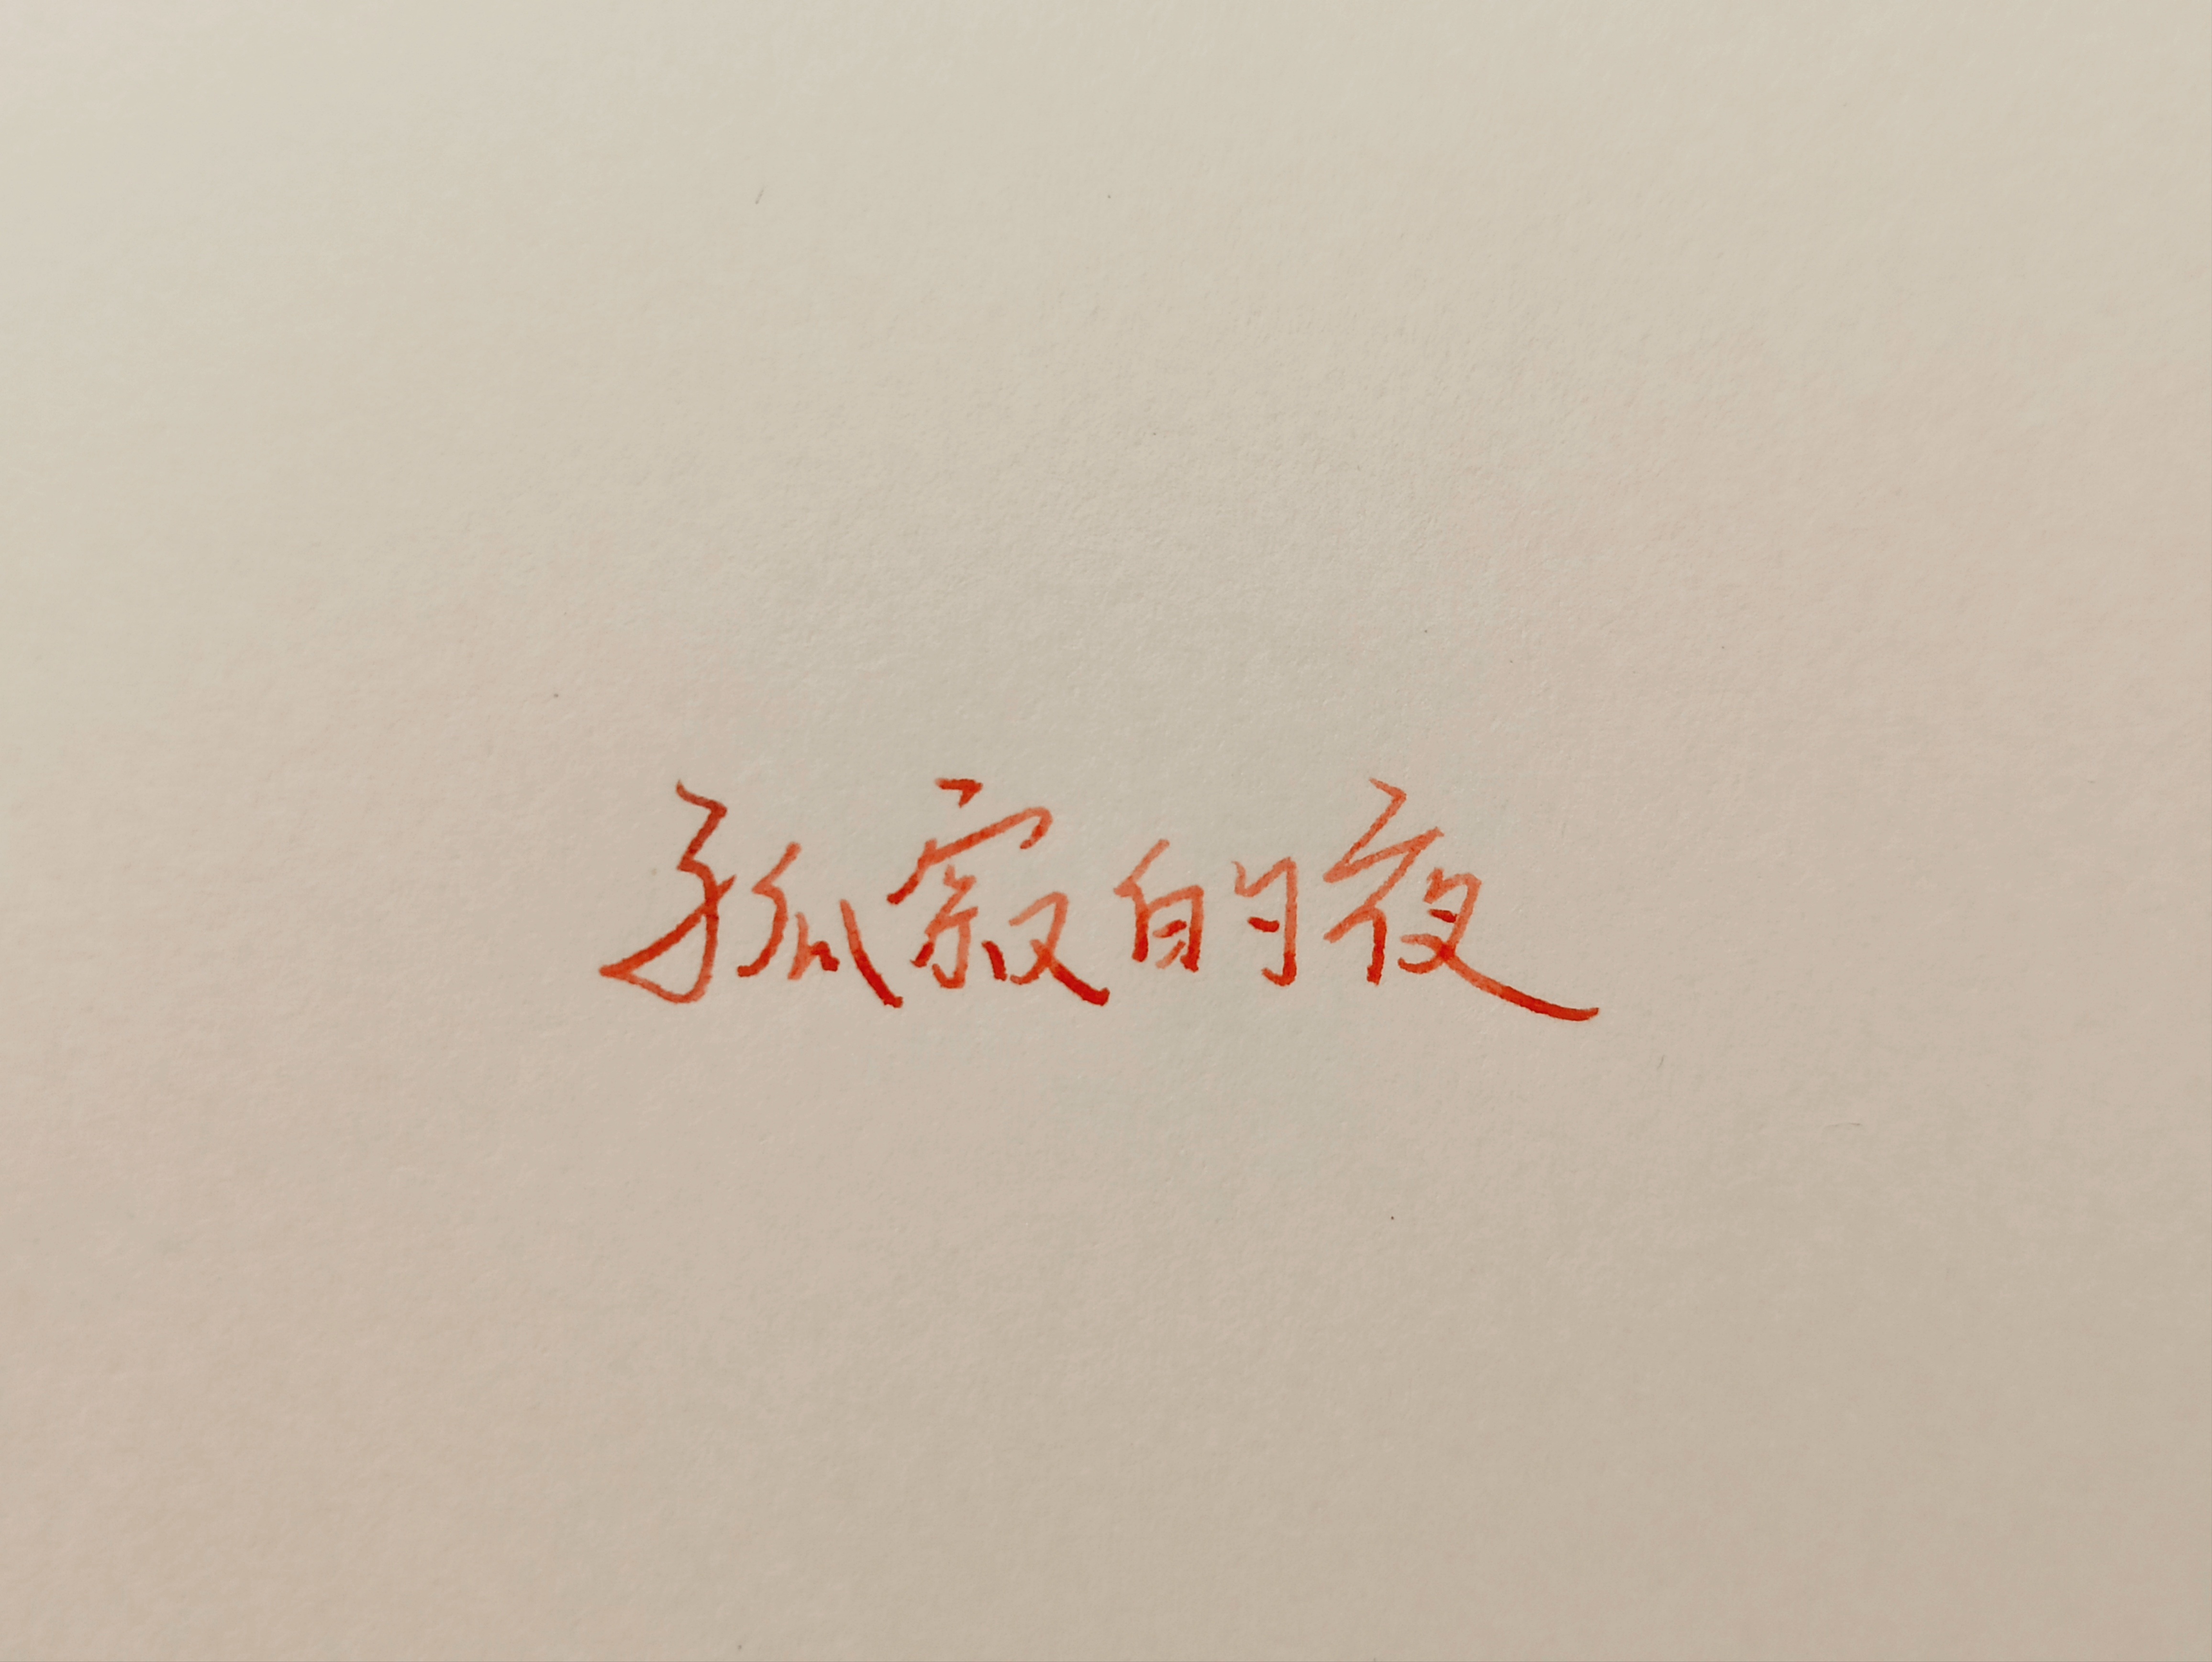 孤寂的夜